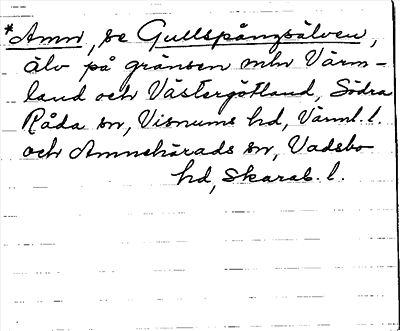 *Amn, se Gullspångsälven,
älv på gränsen mln Värm-
land och Västergötland, Södra
Råda sn, Visnums hd, Värml. l.
och Amnehärads sn, Vadsbo
hd, Skarab. l.